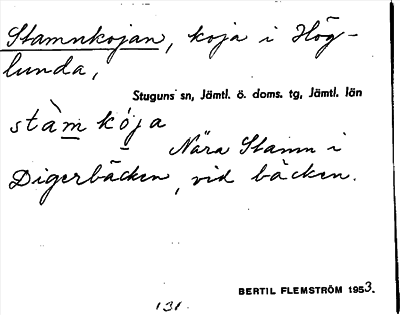 Stamnkojan, koja i Hög-
lunda,
Stuguns sn, Jämtl. ö. doms. tg, Jämtl. län
stàm kója
Nära Stamn i
Digerbäcken, vid bäcken.
BERTIL FLEMSTRÖM 1953.
131.